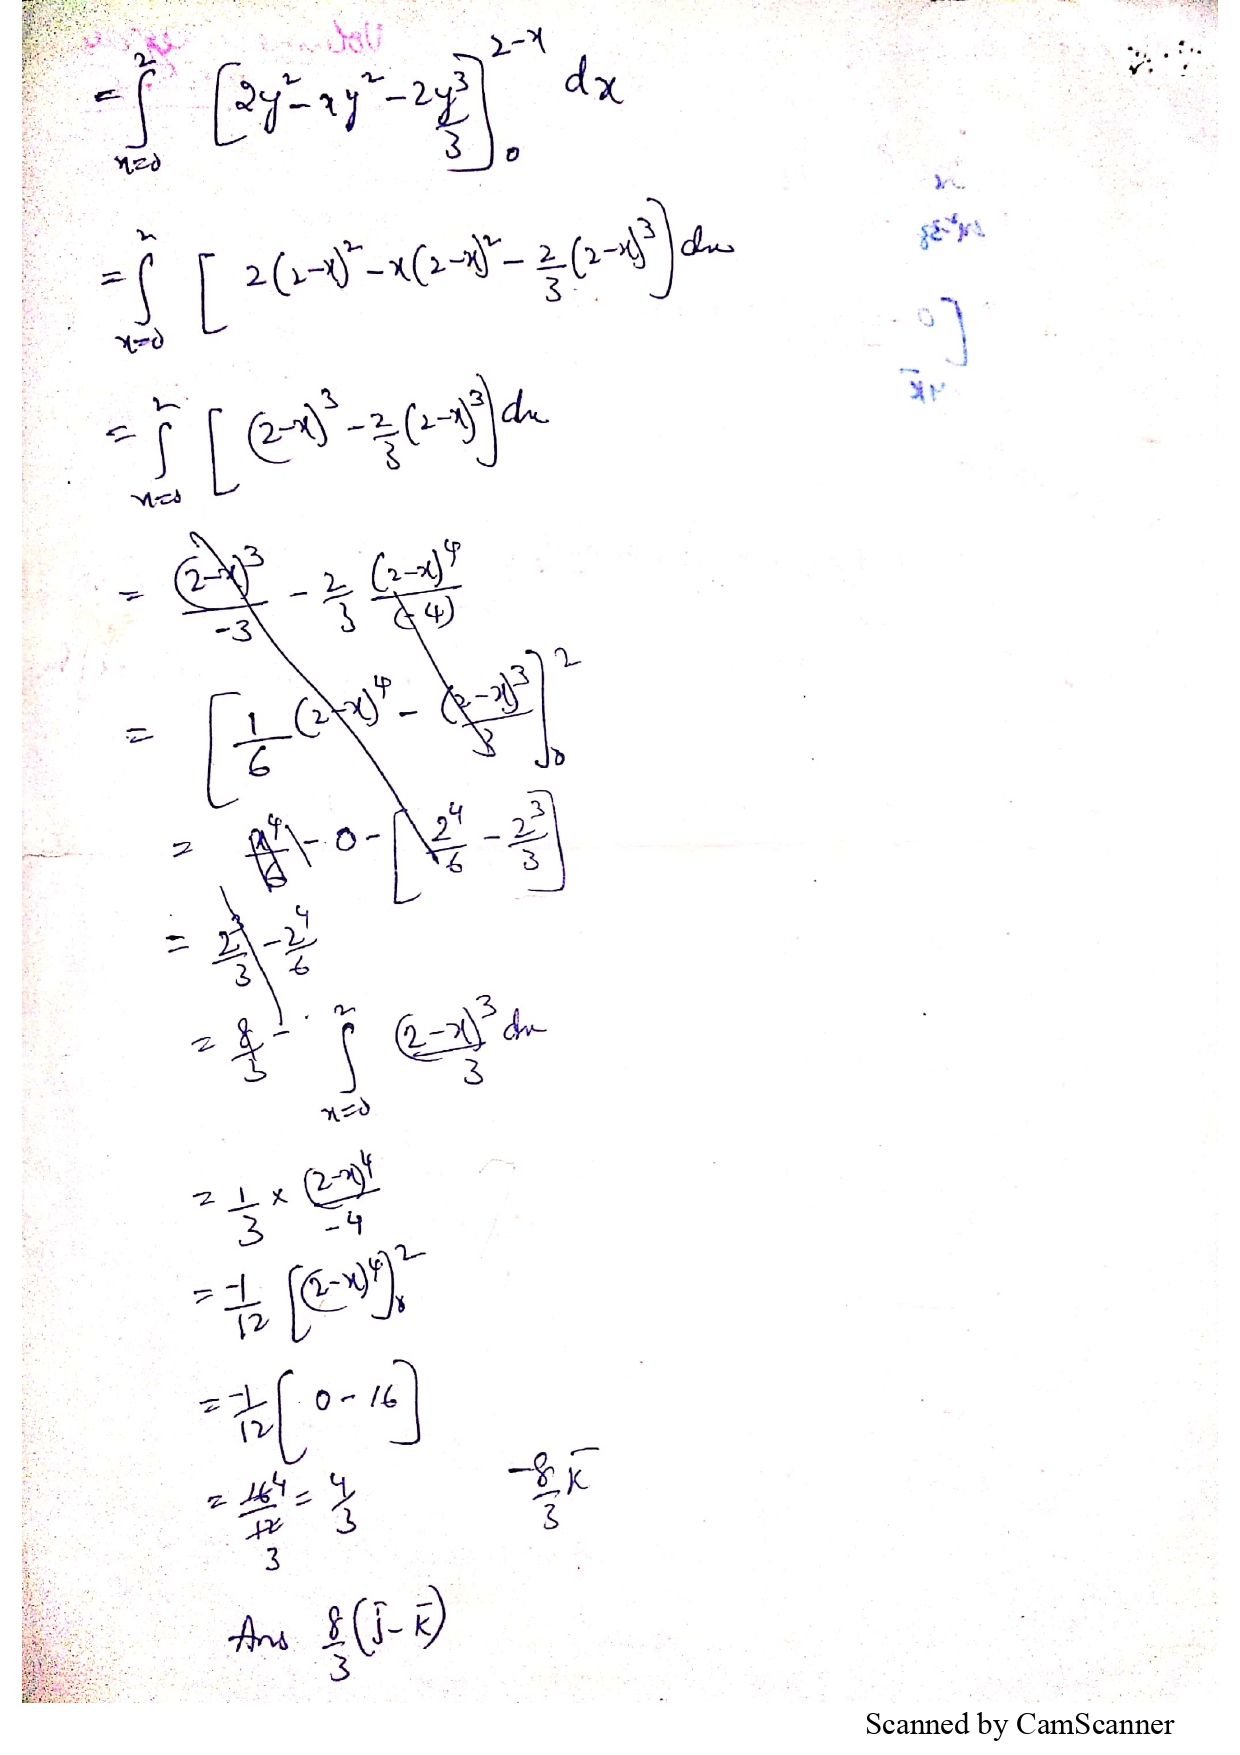 = ∫_{x=0}^{2} [2y² - xy² - 2y³/3]_0^{2-x} dx
= ∫_{x=0}^{2} [2(2-x)² - x(2-x)² - 2/3 (2-x)³] dx
= ∫_{x=0}^{2} [(2-x)³ - 2/3 (2-x)³] dx
= (2-x)³/-3 - 2/3 (2-x)⁴/(-4)
= [1/6 (2-x)⁴ - (2-x)³/3]_0^2
= - 0 - [2⁴/6 - 2³/3]
= 2³/3 - 2⁴/6
= 8/3 - ∫_{x=0}^{2} (2-x)³/3 dx
= 1/3 × (2-x)⁴/-4
= -1/12 [(2-x)⁴]_0^2
= -1/12 [0 - 16]
= 16/12 = 4/3
4
3
-8/3 k̄
Ans 8/3 (j̄ - k̄)
Scanned by CamScanner